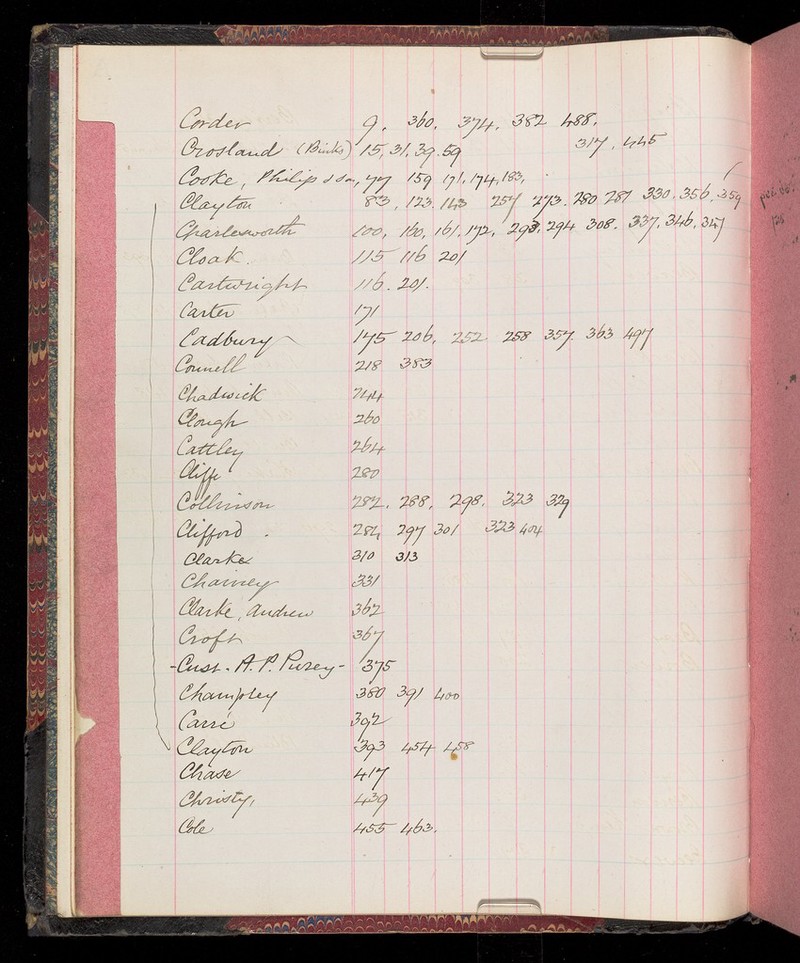 Corder 9. 360. 374. 382 488.
Crosland (Binks) 15, 31, 39. 59 317, 445
Cooke, Philip & Son, 77 159 171, 174, 183,
Clayton 83, 123. 143 257 273. 280 287 330. 356. 359
Charlesworth 100, 160, 161. 172, 293, 294 308. 337. 346. 347
Cloak. 115 116 201
Cartwright 116. 201.
Carter 171
Cadbury 175 206, 252 258 357. 363 497
Connell 218 383
Chadwick 244
Clough 260
Cattley 264
Cliffe 280
Collinson 282. 288. 298. 323 329
Clifford. 284 297 301 323 404
Clarke 310 313
Chainey 331
Clarke, Andrew 362
Croft 367
-Cust. A. P. Purey- 375
Champley 380 391 400
Carré 392
Clayton 393 454 458
Chase 417
Christy, 439
Cole 455 463.